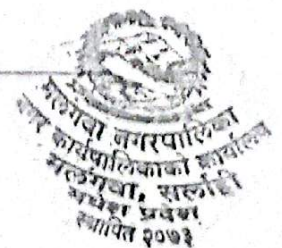 मलंगवा नगरपालिका
नगर कार्यपालिकाको कार्यालय
मलंगवा, सर्लाही
मधेश प्रदेश
स्थापित २०७३